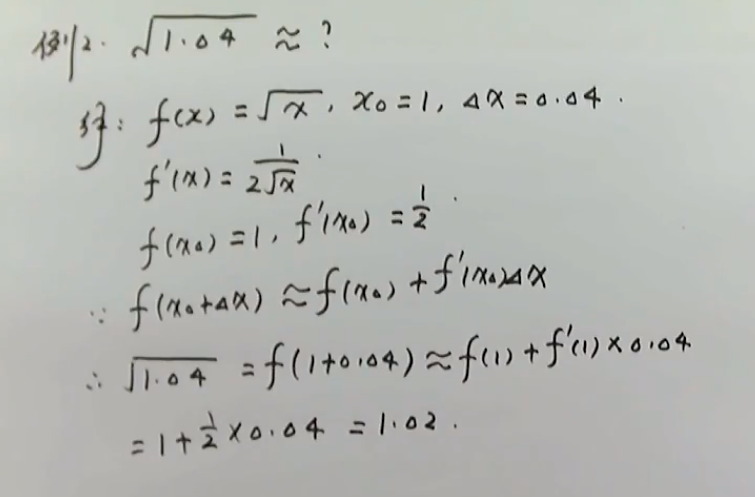 例2. √1.04 ≈ ?
解: f(x) = √x, x₀ = 1, Δx = 0.04.
f'(x) = 1/(2√x).
f(x₀) = 1, f'(x₀) = 1/2.
∵ f(x₀+Δx) ≈ f(x₀) + f'(x₀)Δx
∴ √1.04 = f(1+0.04) ≈ f(1) + f'(1) × 0.04
= 1 + 1/2 × 0.04 = 1.02.